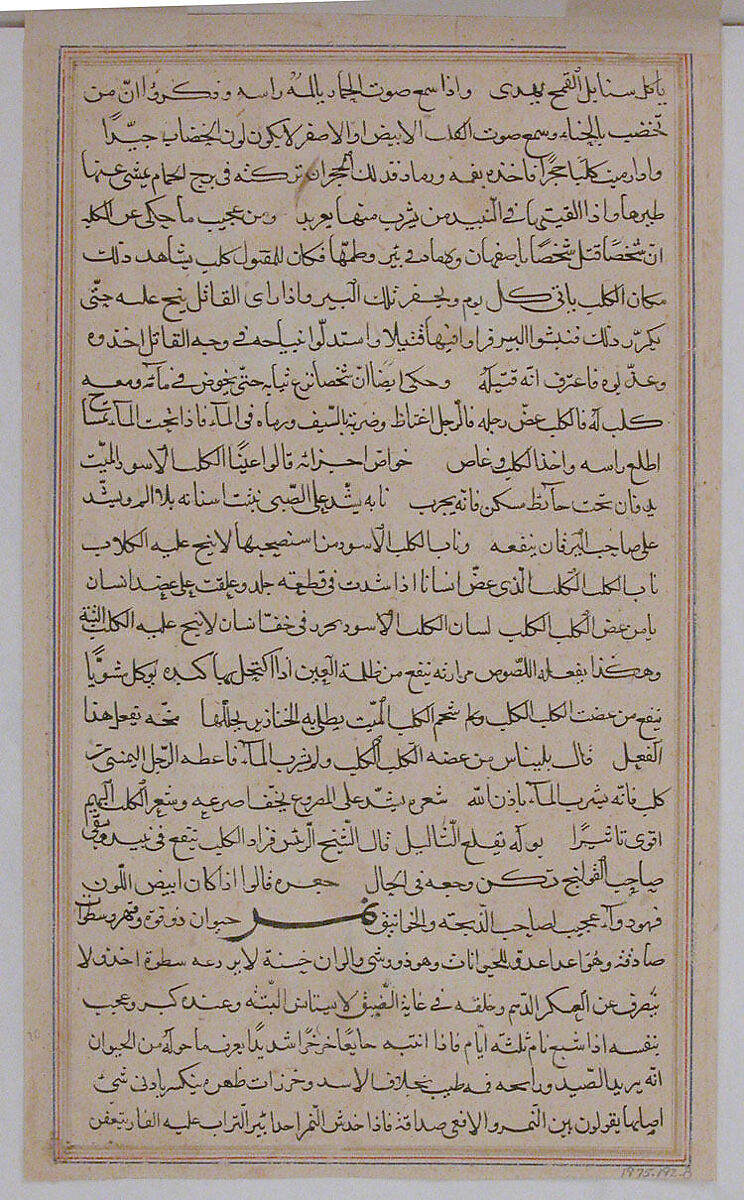 ياكل سنابل القمح واذا سمع صوت الحمار يالمه راسه وذكروا ان من
تخضب بالحناء وسمع صوت الكلب الابيض او الاصفر لا يكون لون الخضاب جيدا
كلبا حجرا فاخذه بفمه فى برج الحمام عنها
طيرها واذا القيتها فى النبيد من يشرب منها يعربد ومن عجيب ما حكى عن الكلب
ان شخصا قتل شخصا باصفهان فى بير وطمها فكان للمقتول كلب يشاهد ذلك
مكان الكلب ياتى كل يوم ويحفر تلك البير واذا راى القاتل ينبح عليه حتى
تكرر ذلك فنبشوا البير فراوا فيها قتيلا واستدلوا بنباحه فى وجه القاتل اخذوه
وعذبوه فاعترف انه قتيله وحكى ايضا ان شخصا نزع ثيابه حتى يخوض فى ماء ومعه
كلب له فالكلب عض رجله فالرجل اغتاظ وضربه بالسيف ورماه فى الماء فاذا تحت الماء تمساح
اطلع راسه واخذ الكلب وغاص خواص اجزائه قالوا عين الكلب الاسود الميت
يدفن تحت حائط سكن فانه يخرب نابه يشد على الصبى نبتت اسنانه بلا الم ويشد
على صاحب اليرقان ينفعه وناب الكلب الاسود من استصحبها لا ينبح عليه الكلاب
ناب الكلب الكلب الذى عض انسانا اذا شدت فى قطعة جلد وعلقت على عضد انسان
يامن عض الكلب الكلب لسان الكلب الاسود فى خف انسان لا ينبح عليه الكلب البتة
وهكذا يفعله اللصوص مرارته تنفع من ظلمة العين اذا اكتحل بها كبده يوكل مشويا
ينفع من عضت الكلب الكلب شحم الكلب الميت يطلى به الخنازير يحللها مخه تفعل هذا
الفعل قال بليناس من عضه الكلب الكلب ولم يشرب الماء فاعطه الرجل اليمنى من
كلب فانه يشرب الماء باذن الله شعره يشد على المصروع يخف صرعه وشعر الكلب البهيم
اقوى تاثيرا بوله يقلع الثاليل قال الشيخ الرئيس قراد الكلب ينقع فى نبيد ويسقى
صاحب القولنج يسكن وجعه فى الحال جعره قالوا اذا كان ابيض اللون
فهو دواء عجيب لصاحب الذبحة والخوانيق نمر حيوان ذو قوة وقهر وسطوات
صادقة وهو اعدا عدو للحيوانات وهو ذو وشى والوان حسنة لا يردعه سطوة احد ولا
ينصرف عن العسكر الدهم وخلقه فى غاية الضيق لا يستانس البتة وعنده كبر وعجب
بنفسه اذا شبع نام ثلثة ايام فاذا انتبه جايعا خرج شديدا يعرف ما حوله من الحيوان
انه يريد الصيد ورايحة فمه طيب بخلاف الاسد وخرزات ظهره ينكسر بادنى شئ
اصابها يقولون بين النمر والافعى صداقة فاذا خدش النمر احدا التراب عليه الفار يتعفن
1975.192.8